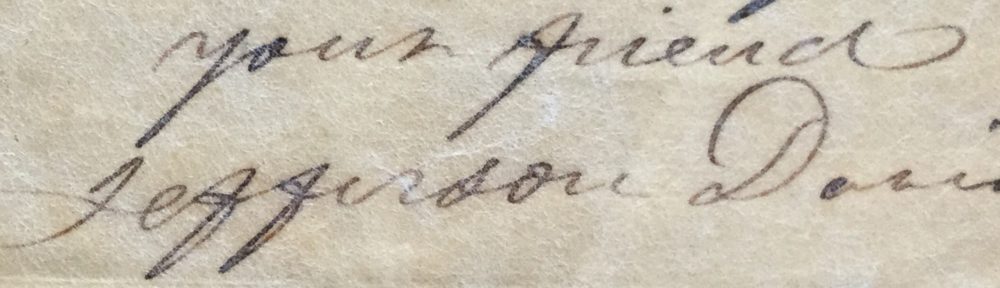 your friend
Jefferson Davi